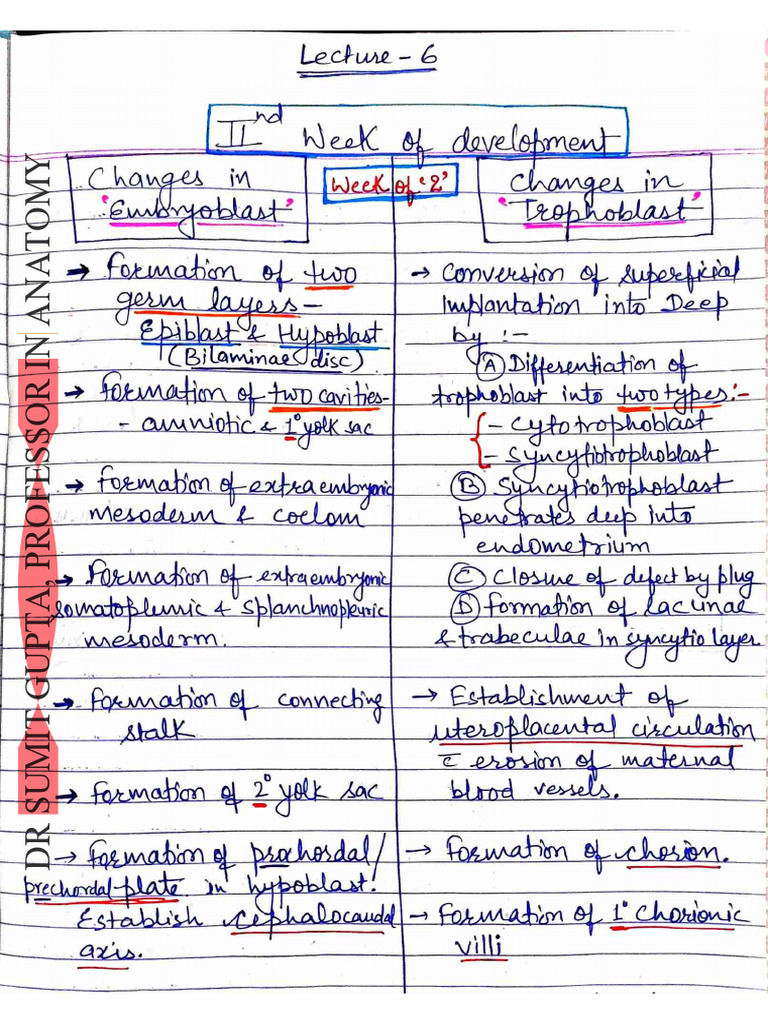 Lecture - 6
IInd Week of development
Changes in
'Embryoblast'
Week of '2'
Changes in
'Trophoblast'
→ Formation of two
germ layers -
Epiblast & Hypoblast
(Bilaminae disc)
→ Formation of two cavities-
- amniotic & 1° yolk sac
→ Formation of extraembryonic
mesoderm & coelom
→ Formation of extraembryonic
somatopleuric & splanchnopleuric
mesoderm.
→ Formation of connecting
stalk
→ Formation of 2° yolk sac
→ Formation of prochordal/
prechordal plate in hypoblast.
Establish cephalocaudal
axis.
→ Conversion of superficial
Implantation into Deep
by :-
(A) Differentiation of
trophoblast into two types:-
- Cytotrophoblast
- Syncytiotrophoblast
(B) Syncytiotrophoblast
penetrates deep into
endometrium
(C) Closure of defect by plug
(D) Formation of Lacunae
& trabeculae in syncytio layer
→ Establishment of
uteroplacental circulation
c̄ erosion of maternal
blood vessels.
→ Formation of chorion.
→ Formation of 1° Chorionic
villi
DR SUMIT GUPTA, PROFESSOR IN ANATOMY